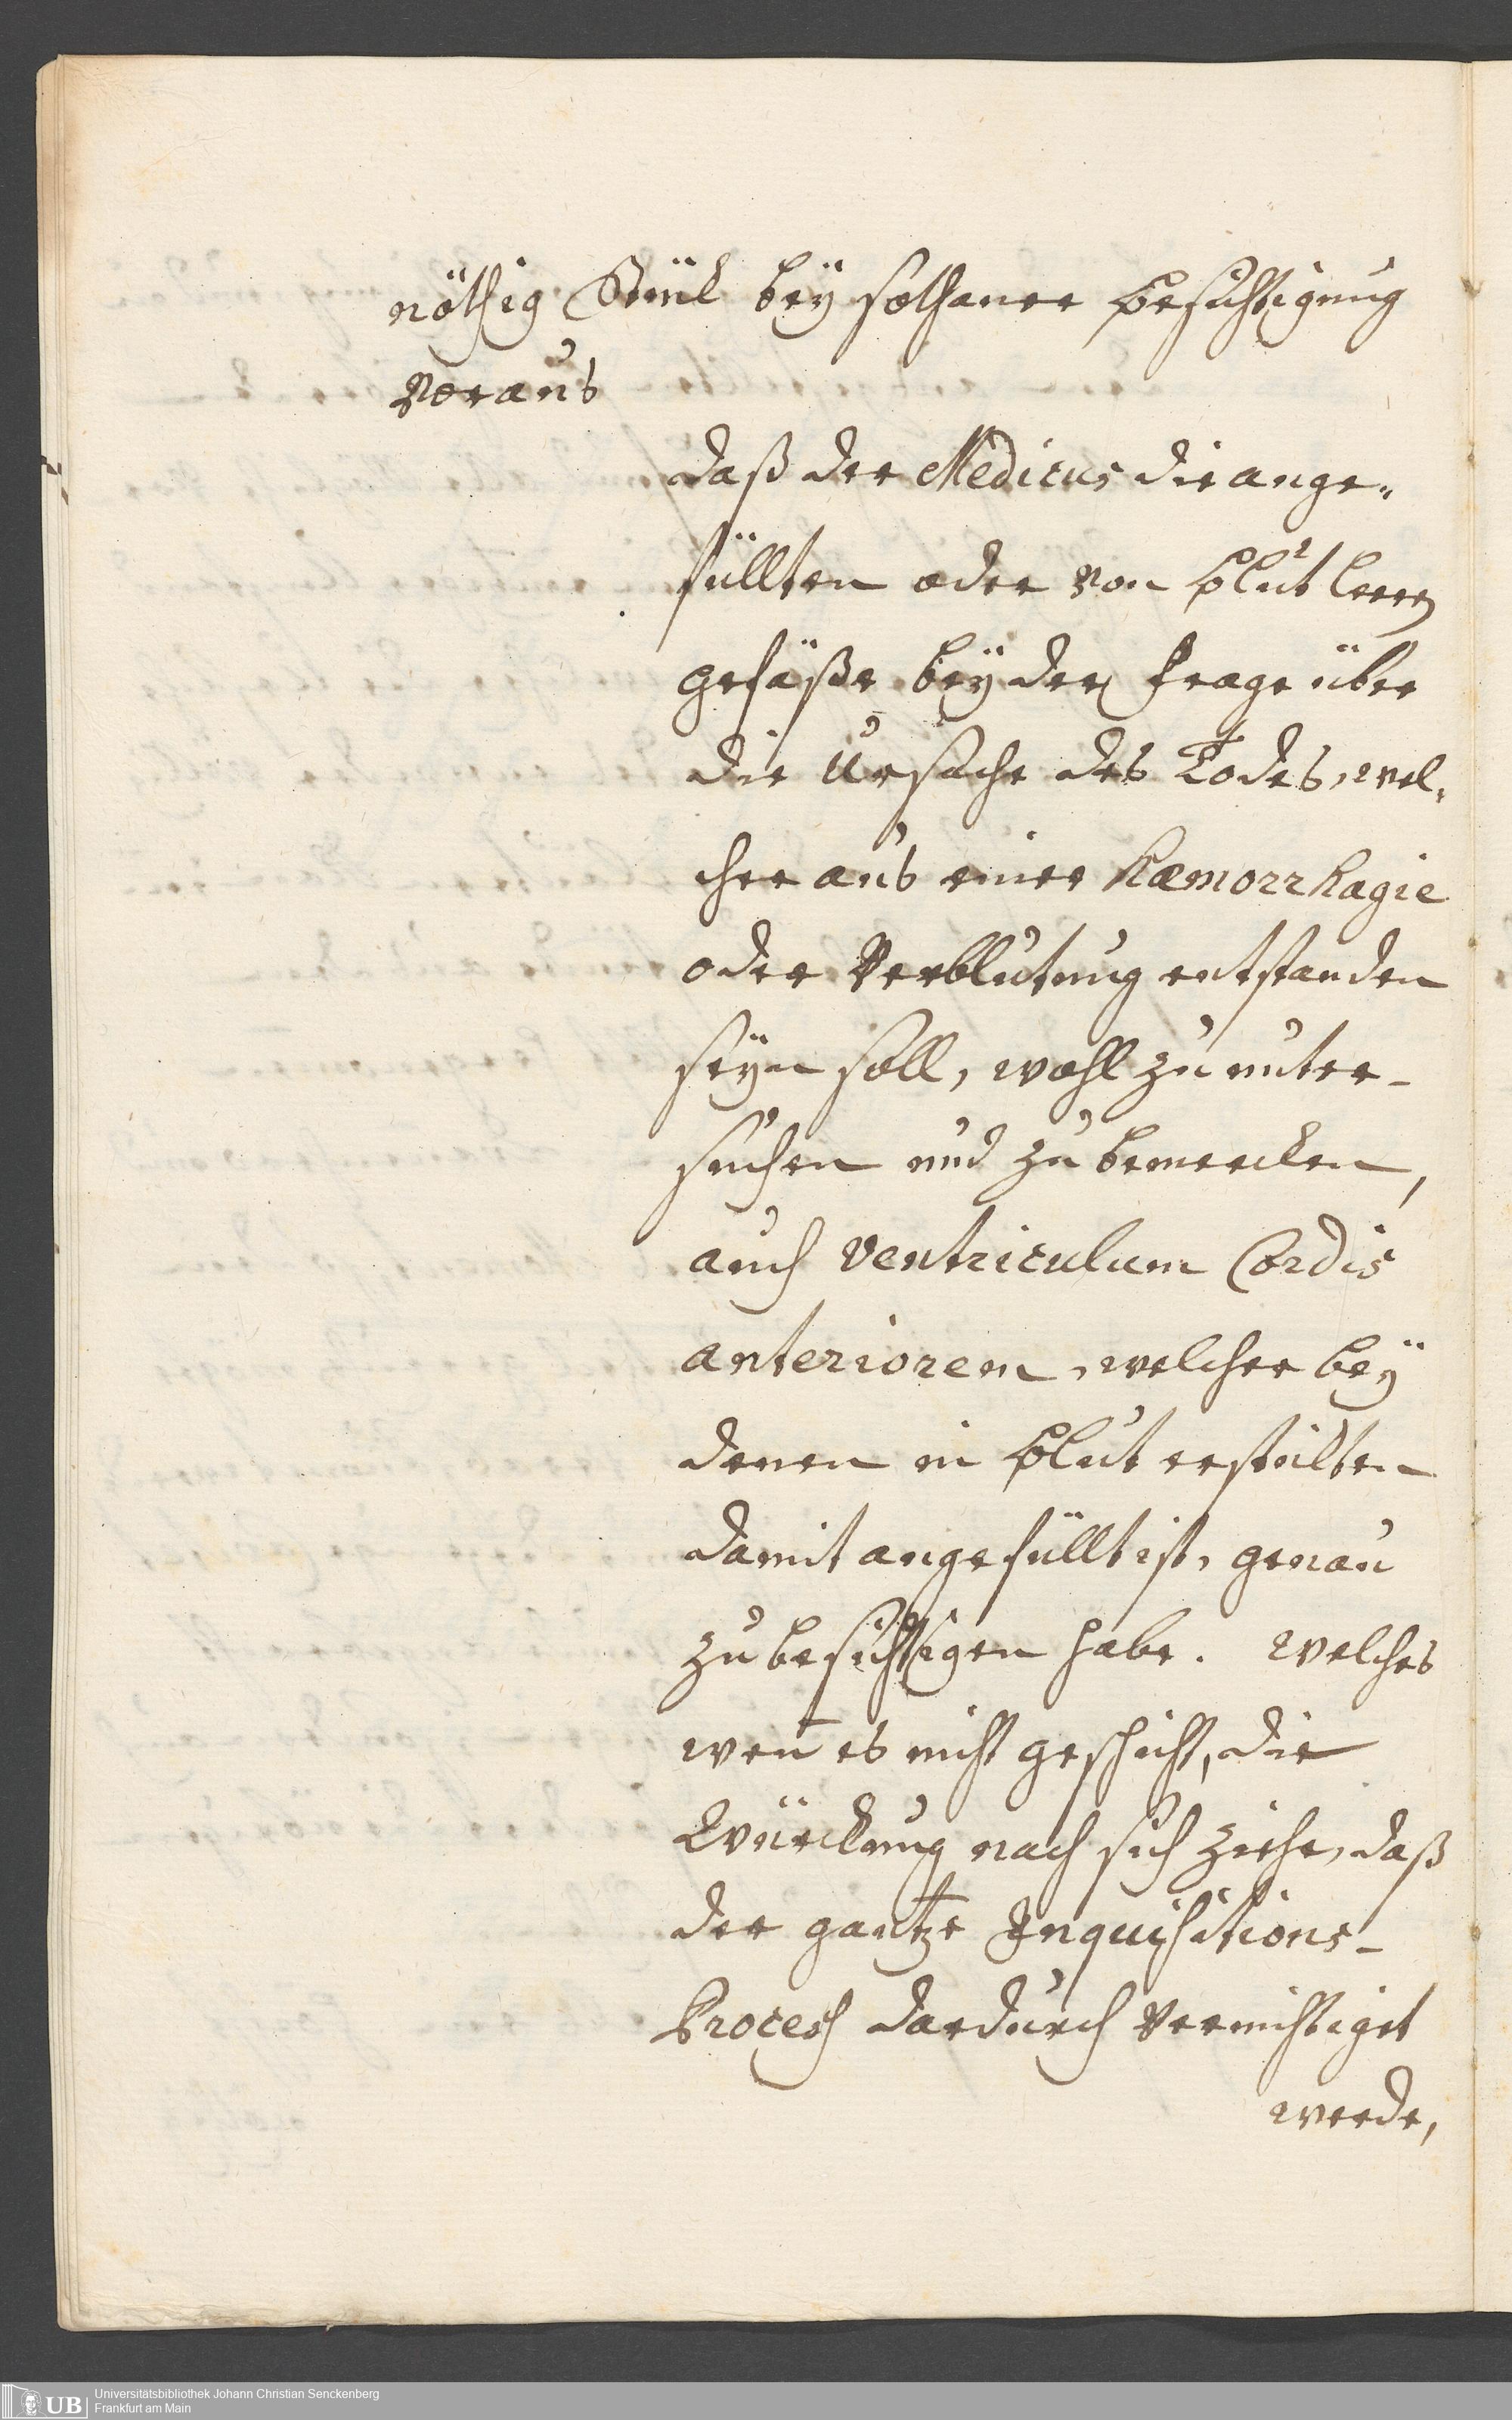 nöthig Stück beÿ sothaner Besichtigung
voraus
daß der Medicus die ange„
füllten oder von Blut leeren
gefäße beÿ der Frage über
die Ursache des Todes, wel„
cher aus einer hæmorrhagie
oder Verblutung entstanden
seÿn soll, wohl zu unter-
suchen und zu bemercken,
auch ventriculum Cordis
anteriorem, welcher beÿ
denen in Blut erstickten
damit angefüllt ist, genau
zu besichtigen habe. Welches
wen̄ es nicht geschicht, die
Würckung nach sich ziehe, daß
der gantze Inquisitions-
Process dardurch vernichtiget
werde,
UB Universitätsbibliothek Johann Christian Senckenberg
Frankfurt am Main